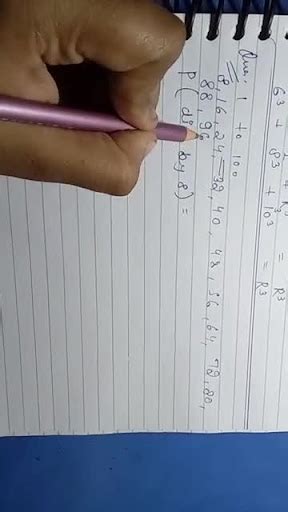 6³ + 8³ + 10³ = R³
Que. 1 to 100
8, 16, 24, 32, 40, 48, 56, 64, 72, 80,
88, 96
P ( by 8) =